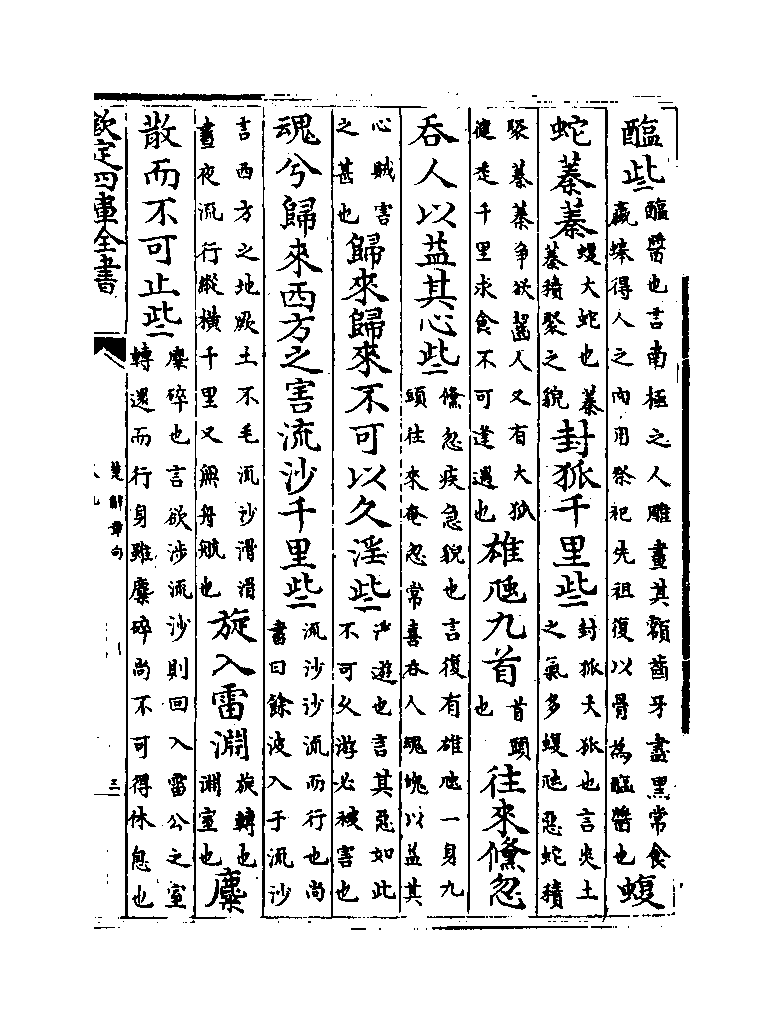 醢些醢醬也言南極之人雕畫其額齒牙盡黑常食蠃蜯得人之肉用祭祀先祖復以骨為醢醬也蝮
蛇蓁蓁蝮大蛇也蓁蓁積聚之貌封狐千里些封狐大狐也言炎土之氣多蝮虺惡蛇積
聚蓁蓁爭欲齧人又有大狐健走千里求食不可逢遇也雄虺九首首頭也往來儵忽
吞人以益其心些儵忽疾急貌也言復有雄虺一身九頭往來奄忽常喜吞人魂魄以益其
心賊害之甚也歸來歸來不可以久淫些淫遊也言其惡如此不可久游必被害也
魂兮歸來西方之害流沙千里些流沙沙流而行也尚書曰餘波入于流沙
言西方之地厥土不毛流沙滑滑晝夜流行縱橫千里又無舟航也旋入雷淵旋轉也淵室也麋
散而不可止些麋碎也言欲涉流沙則回入雷公之室轉還而行身雖麋碎尚不可得休息也
欽定四庫全書
楚辭章句
三